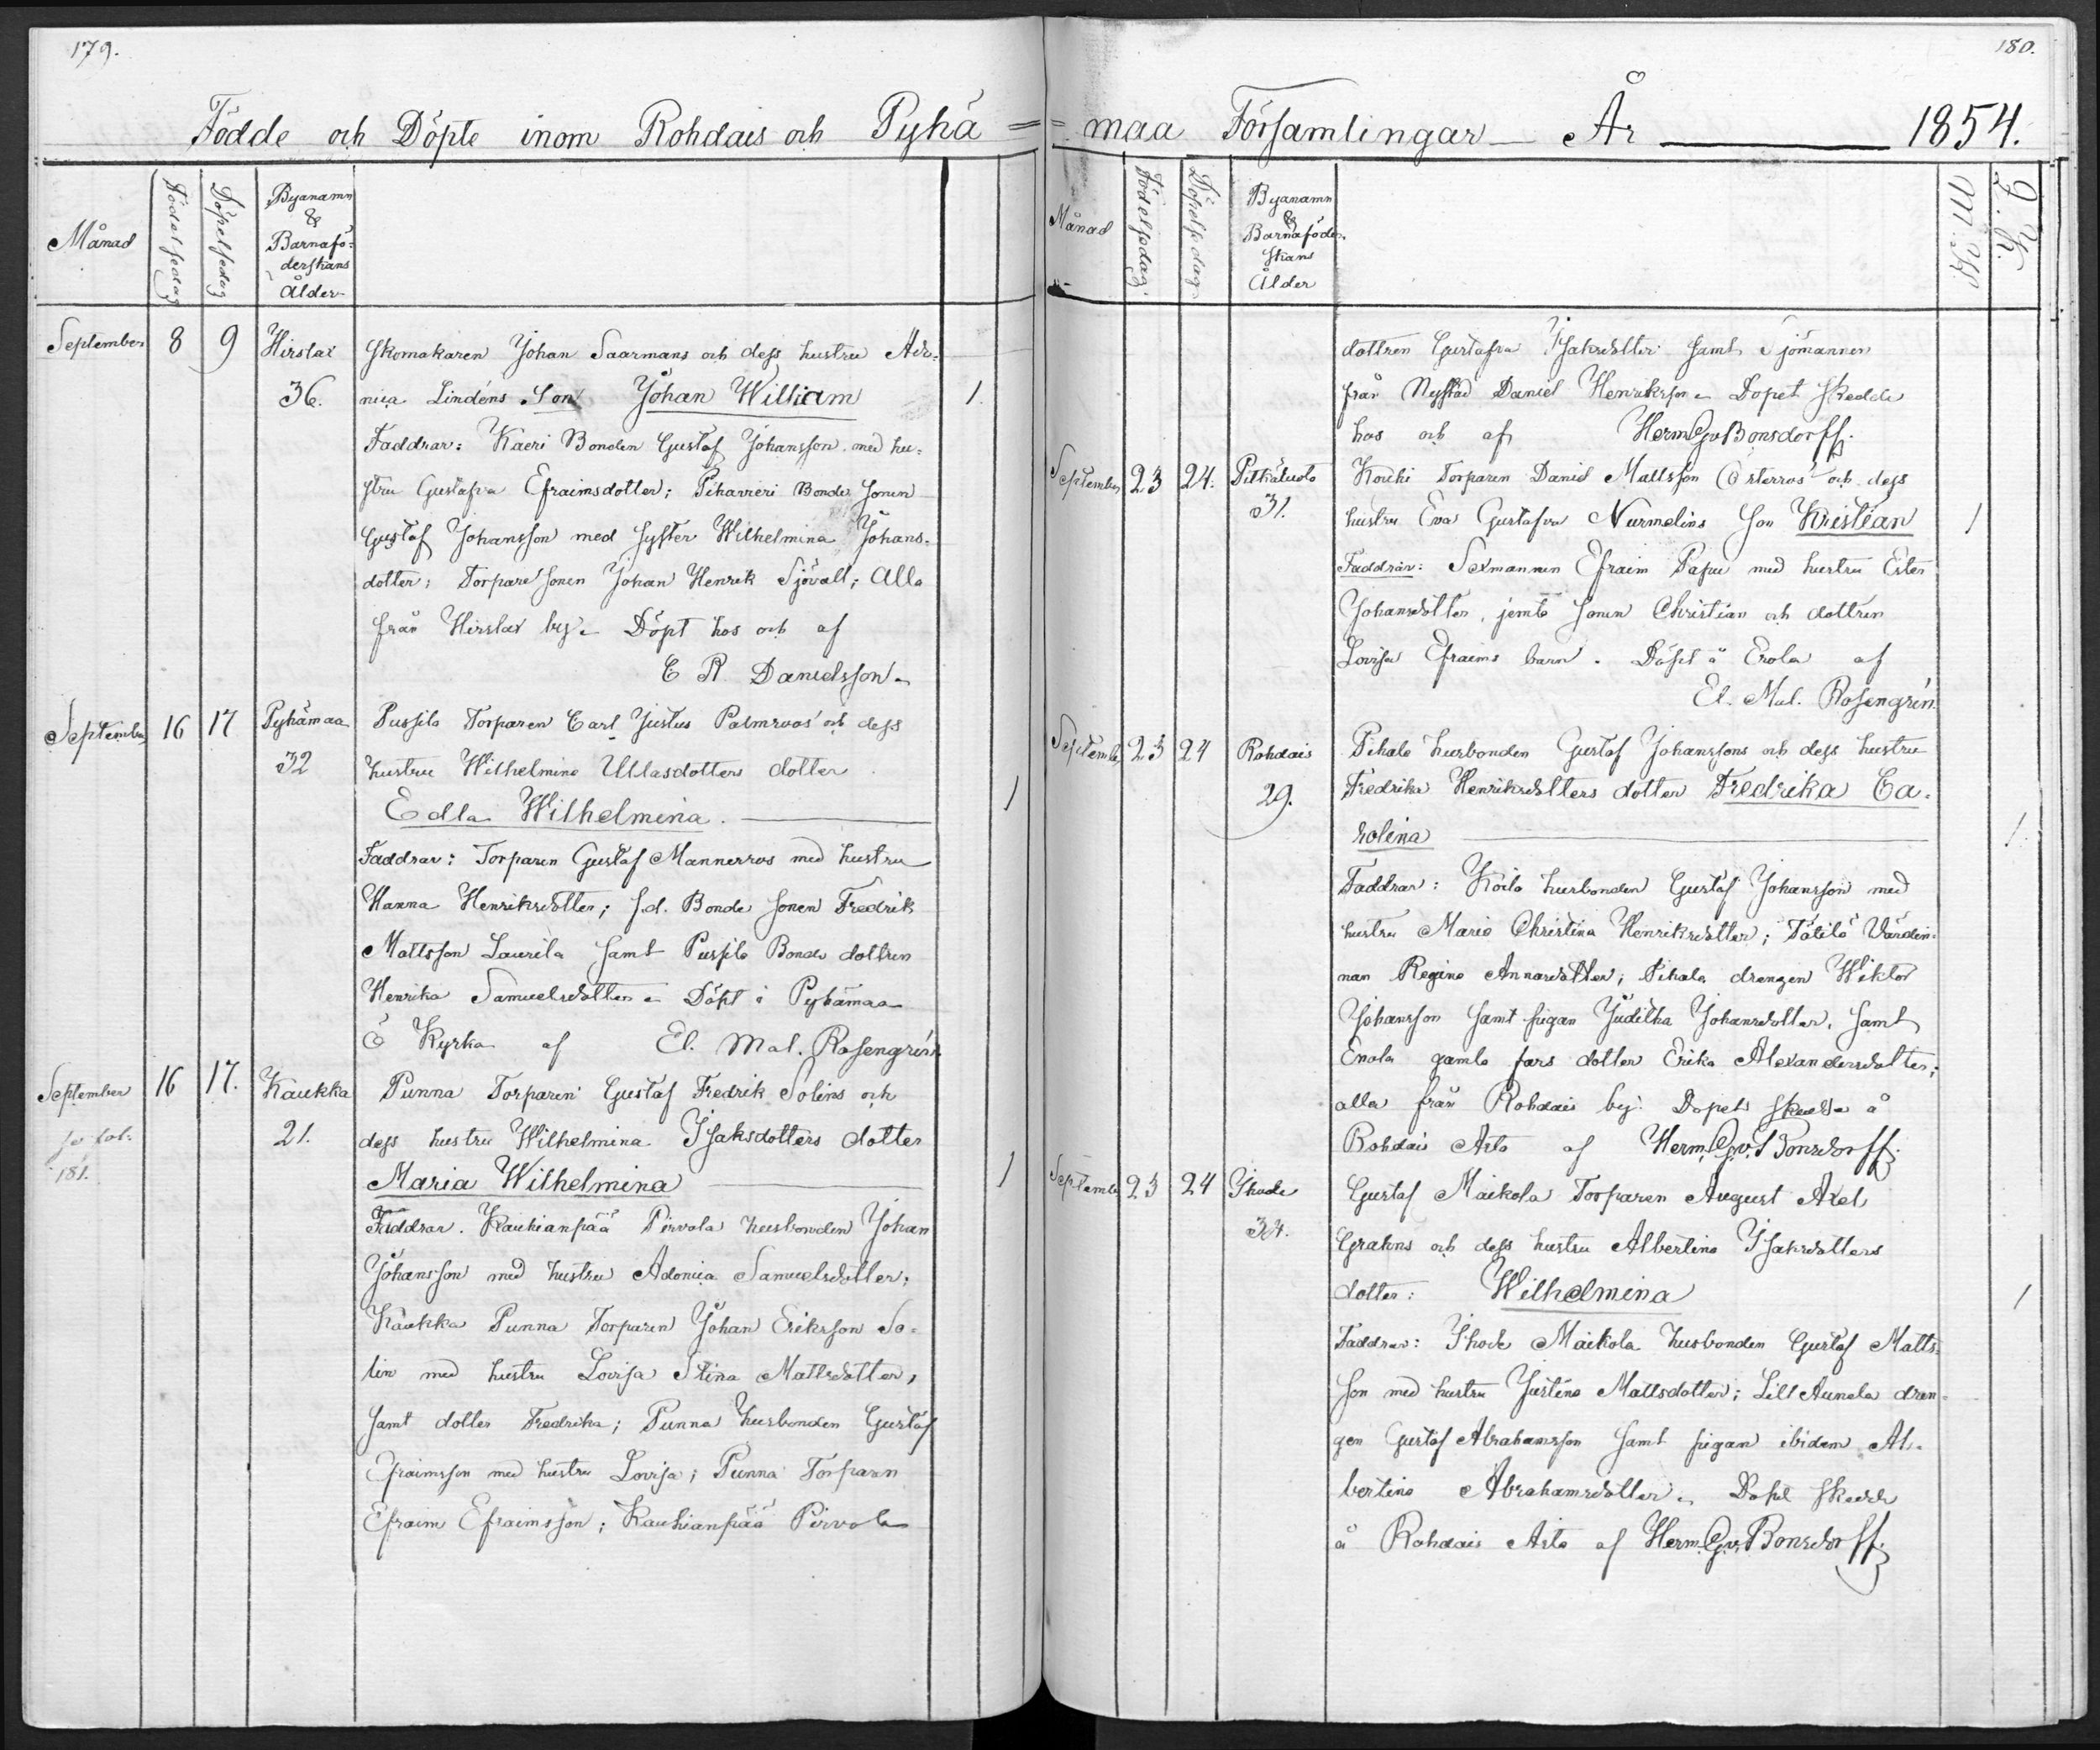 179.
Födde och Döpte inom Rohdais och Pyhä=
Månad
Födelsedag
Döpelsedag
Byanamn
&
Barnafö=
derskans
Ålder
September 8 9 Hirslax Skomakaren Johan Saarmans och dess hustru Ado=
36. nica Lindéns Son Johan William 1.
Faddrar: Kaeri Bonden Gustaf Johansson med hu=
stru Gustafva Efraimsdotter; Piharreri Bonde sonen
Gustaf Johansson med syster Wilhelmina Johans=
dotter; Torpare sonen Johan Henrik Sjövall; Alla
från Hirslax by. Döpt hos och af
C R Danielsson.
September 16 17 Pyhämaa Pussila Torparen Carl Justus Palmroos och dess
32 hustru Wilhelmina Ullasdotters dotter
Edla Wilhelmina. 1
Faddrar: Torparen Gustaf Mannerros med hustru
Hanna Henriksdotter; f.d. Bonde sonen Fredrik
Mattsson Laurila samt Pussila Bonde dottren
Henrika Samuelsdotter. Döpt i Pyhämaa
Ö Kyrka af El. Mal. Rosengrén
September 16 17. Kaukka Punna Torparen Gustaf Fredrik Solins och
21. dess hustru Wilhelmina Isaksdotters dotter
181.
Maria Wilhelmina 1
Faddrar. Kauhianpää Pirvola husbonden Johan
Johansson med hustru Adonica Samuelsdotter;
Kaukka Punna Torparen Johan Eriksson So=
lin med hustru Lovisa Stina Mattsdotter,
samt dotter Fredrika; Punna husbonden Gustaf
Efraimsson med hustru Lovisa; Punna Torparen
Efraim Efraimsson; Kauhianpää Pirvola
180.
=maa Församlingar År 1854.
Månad
Födelsedag.
Döpelsedag
Byanamn
&
Barnaföder.
skans
Ålder
M. K.
Q. K.
dottren Gustafva Isaksdotter samt Sjömannen
från Nystad Daniel Henriksson. Dopet skedde
hos och af Herm. G. v. Bonsdorff.
September 23 24. Pitkäluoto Kouhi Torparen Daniel Mattsson Österros och dess
31. hustru Eva Gustafva Nurmelins son Kristian 1
Faddrar: Sexmannen Efraim Papu med hustru Ester
Johansdotter, jemte sonen Christian och dottren
Lovisa Efraims barn. Döpt å Erola af
El. Mal. Rosengrén.
September 23 24 Rohdais Pihala husbonden Gustaf Johanssons och dess hustru
29. Fredrika Henriksdotters dotter Fredrika Ca=
rolina 1.
Faddrar: Koila husbonden Gustaf Johansson med
hustru Maria Christina Henriksdotter; Tätilä Värdin=
nan Regina Annasdotter; Pihala drengen Wiktor
Johansson samt pigan Juditha Johansdotter, samt
Enola gamla fars dotter Erika Alexandersdotter;
alla från Rohdais by. Dopet skedde å
Rohdais Arlo af Herm. G. v. Bonsdorff.
September 23 24 Ihode Gustaf Maikola Torparen August Axel
34. Grahns och dess hustru Albertina Isaksdotters
dotter: Wilhelmina 1
Faddrar: Ihode Maikola husbonden Gustaf Matts=
son med hustru Justina Mattsdotter; Lill Aunela dren=
gen Gustaf Abrahamsson samt pigan ibidem Al=
bertina Abrahamsdotter. Dopet skedde
å Rohdais Arlo af Herm. G. v. Bonsdorff.